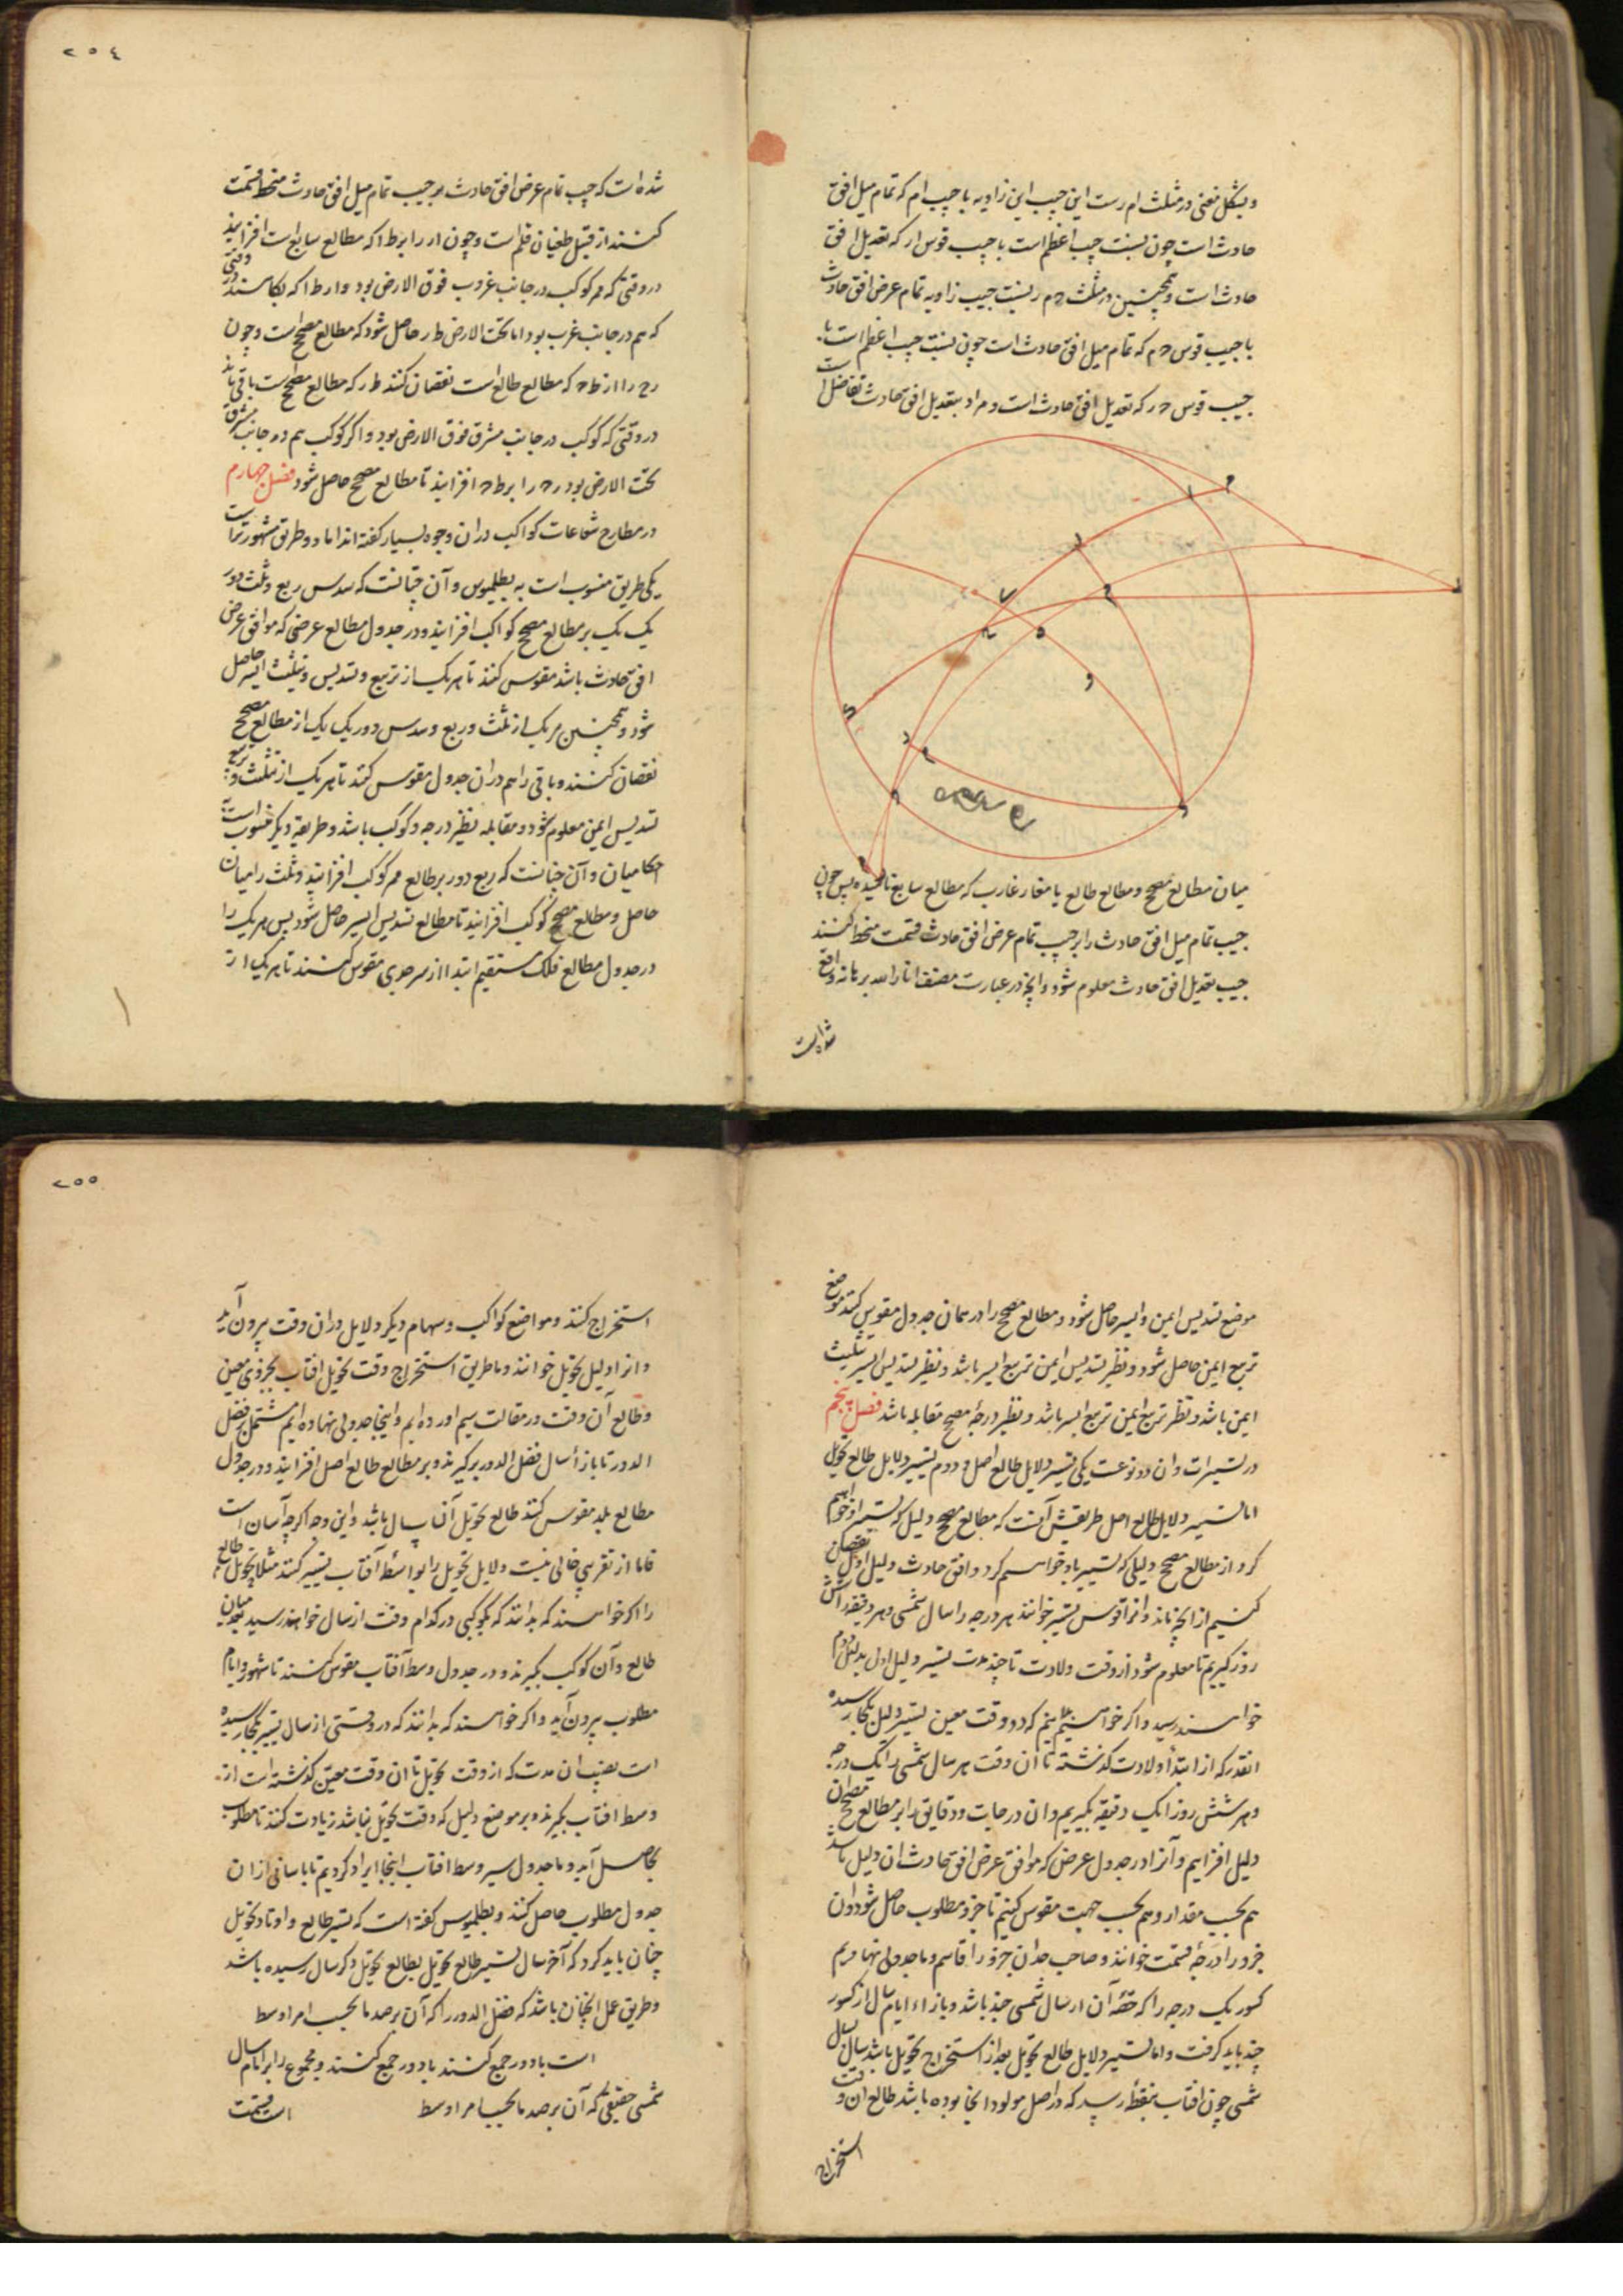 وبشکل مغنی در مثلث ام ر نسبت این جیب این زاویه با جیب ام که تمام میل افق
حادث است چون نسبت جیب اعظم است با جیب قوس ار که تعدیل افق
حادث است وهمچنین در مثلث ح م ر نسبت جیب زاویه تمام عرض افق حادث
با جیب قوس ح م که تمام میل افق حادث است چون نسبت جیب اعظم است با
جیب قوس ح ر که تعدیل افق حادث است و مراد بتعدیل افق حادث تفاضل است
میان مطالع مصحح ومطالع طالع یا مغارب غارب که مطالع سابع نامیده پس چون
جیب تمام میل افق حادث را بر جیب تمام عرض افق حادث قسمت منحط کنند
جیب تعدیل افق حادث معلوم شود وانچه در عبارت مصنف انار الله برهانه واقع
شده است
٢٥٤
شده است که جیب تمام عرض افق حادث بر جیب تمام میل افق حادث منحط قسمت
کنند از قبیل طغیان قلم است وچون ار را بر ط ا که مطالع سابع است افزایند
در وقتی که ممر کوکب در جانب غروب فوق الارض بود و ار ط ا که بکاهند در وقتی
که هم در جانب غرب بود اما تحت الارض ط ر حاصل شود که مطالع مصحح است وچون
ر ح را از ط ح که مطالع طالع است نقصان کنند ط ر که مطالع مصحح است باقی ماند
در وقتی که کوکب در جانب مشرق فوق الارض بود و اگر کوکب هم در جانب مشرق
تحت الارض بود ر ح را بر ط ح افزایند تا مطالع مصحح حاصل شود فصل چهارم
در مطارح شعاعات کواکب دران وجوه بسیار گفته اند اما دو طریق مشهورتر است
یکی طریق منسوب است به بطلیموس وآن چنانست که سدس ربع وثلث دور
یک یک بر مطالع مصحح کواکب افزایند ودر جدول مطالع عرضی که موافق عرض
افق حادث باشد مقوس کنند تا هر یک از تربیع وتسدیس وتثلیث ایسر حاصل
شود وهمچنین هر یک از ثلث وربع وسدس دور یک یک از مطالع مصحح
نقصان کنند وباقی را هم دران جدول مقوس کنند تا هر یک از تثلیث وتربیع و
تسدیس ایمن معلوم شود ومقابله نظیر درجه کوکب باشد وطریقه دیگر منسوب است به
احکامیان وآن چنانست که ربع دور بر طالع ممر کوکب افزایند وثلث را میان
حاصل ومطالع مصحح کوکب افزایند تا مطالع تسدیس ایسر حاصل شود پس هر یک را
در جدول مطالع فلک مستقیم ابتدا از سر جدی مقوس کنند تا هر یک از
موضع تسدیس ایمن وایسر حاصل شود ومطالع مصحح را در همان جدول مقوس کنند موضع
تربیع ایمن حاصل شود ونظیر تسدیس ایمن تربیع ایسر باشد ونظیر تسدیس ایسر تثلیث
ایمن باشد ونظیر تربیع ایمن تربیع ایسر باشد ونظیر درجه مصحح مقابله باشد فصل پنجم
در تسییرات وان دو نوعست یکی تسییر دلایل طالع اصل و دوم تسییر دلایل طالع تحویل
اما تسییر دلایل طالع اصل طریقش آنست که مطالع مصحح دلیل که تسییر او خواهیم
کرد از مطالع مصحح دلیلی که تسییر باو خواهیم کرد در افق حادث دلیل اول نقصان
کنیم از انچه ماند وانرا قوس تسییر خوانند هر درجه را سال شمسی وهر دقیقه را شش
روز گیریم تا معلوم شود از وقت ولادت تا چند مدت تسییر دلیل اول بدلیل دوم
خواهد رسید واگر خواهیم که بدانیم که در وقت معین تسییر دلیل بکجا رسیده
انقدر که از ابتدا ولادت گذشته تا ان وقت هر سال شمسی را یک درجه
وهر شش روز را یک دقیقه بگیریم وان درجات ودقایق را بر مطالع مصحح ان
دلیل افزاییم وآنرا در جدول عرض که موافق عرض افق حادث ان دلیل باشد
هم بحسب مقدار وهم بحسب جهت مقوس کنیم تا جزو مطلوب حاصل شود وان
جزو را درجه قسمت خوانند وصاحب حد ان جزو را قاسم وما جدولی نهادیم
کسور یک درجه را که حصه آن از سال شمسی چند باشد وبازاء ایام سال از کسور
چند باید گرفت واما تسییر دلایل طالع تحویل بعد از استخراج تحویل باشد سال بسال
شمسی چون افتاب بنقطه رسید که در اصل مولود انجا بوده باشد طالع ان وقت
استخراج
٢٥٥
استخراج کنند ومواضع کواکب وسهام دیگر دلایل دران وقت بیرون آید
وانرا دلیل تحویل خوانند وما طریق استخراج وقت تحویل افتاب بجزوی معین
وطالع آن وقت در مقالت سیم اورده ایم واینجا جدولی نهاده ایم مشتمل بر فضل
الدور تا بازاء سال فضل الدور برگیرند وبر مطالع طالع اصل افزایند ودر جدول
مطالع بلد مقوس کنند طالع تحویل آن سال باشد واین وجه اگرچه آسان است
فاما از تقریبی خالی نیست ودلایل تحویل را بواسطه آفتاب تسییر کنند مثلا طالع تحویل
را اگر خواهند که بدانند که بکوکبی در کدام وقت از سال خواهد رسید بعد میان
طالع وآن کوکب بگیرند ودر جدول وسط آفتاب مقوس کنند تا شهور وایام
مطلوب بیرون آید واگر خواهند که بدانند که در وقتی از سال تسییر بکجا رسیده
است نصیب ان مدت که از وقت تحویل تا ان وقت معین گذشته است از
وسط افتاب بگیرند وبر موضع دلیل که وقت تحویل باشد زیادت کنند تا مطلوب
بحاصل آید وما جدول سیر وسط افتاب اینجا ایراد کردیم تا باسانی از ان
جدول مطلوب حاصل کنند وبطلیموس گفته است که تسییر طالع واوتاد تحویل
چنان باید کرد که آخر سال تسییر طالع تحویل بطالع تحویل دگر سال رسیده باشد
وطریق عمل انچنان باشد که فضل الدور را که آن برصد ما بحسب امر اوسط
است با دور جمع کنند با دور جمع کنند ومجموع را بر ایام سال
شمسی حقیقی که آن برصد ما بحسب امر اوسط است قسمت